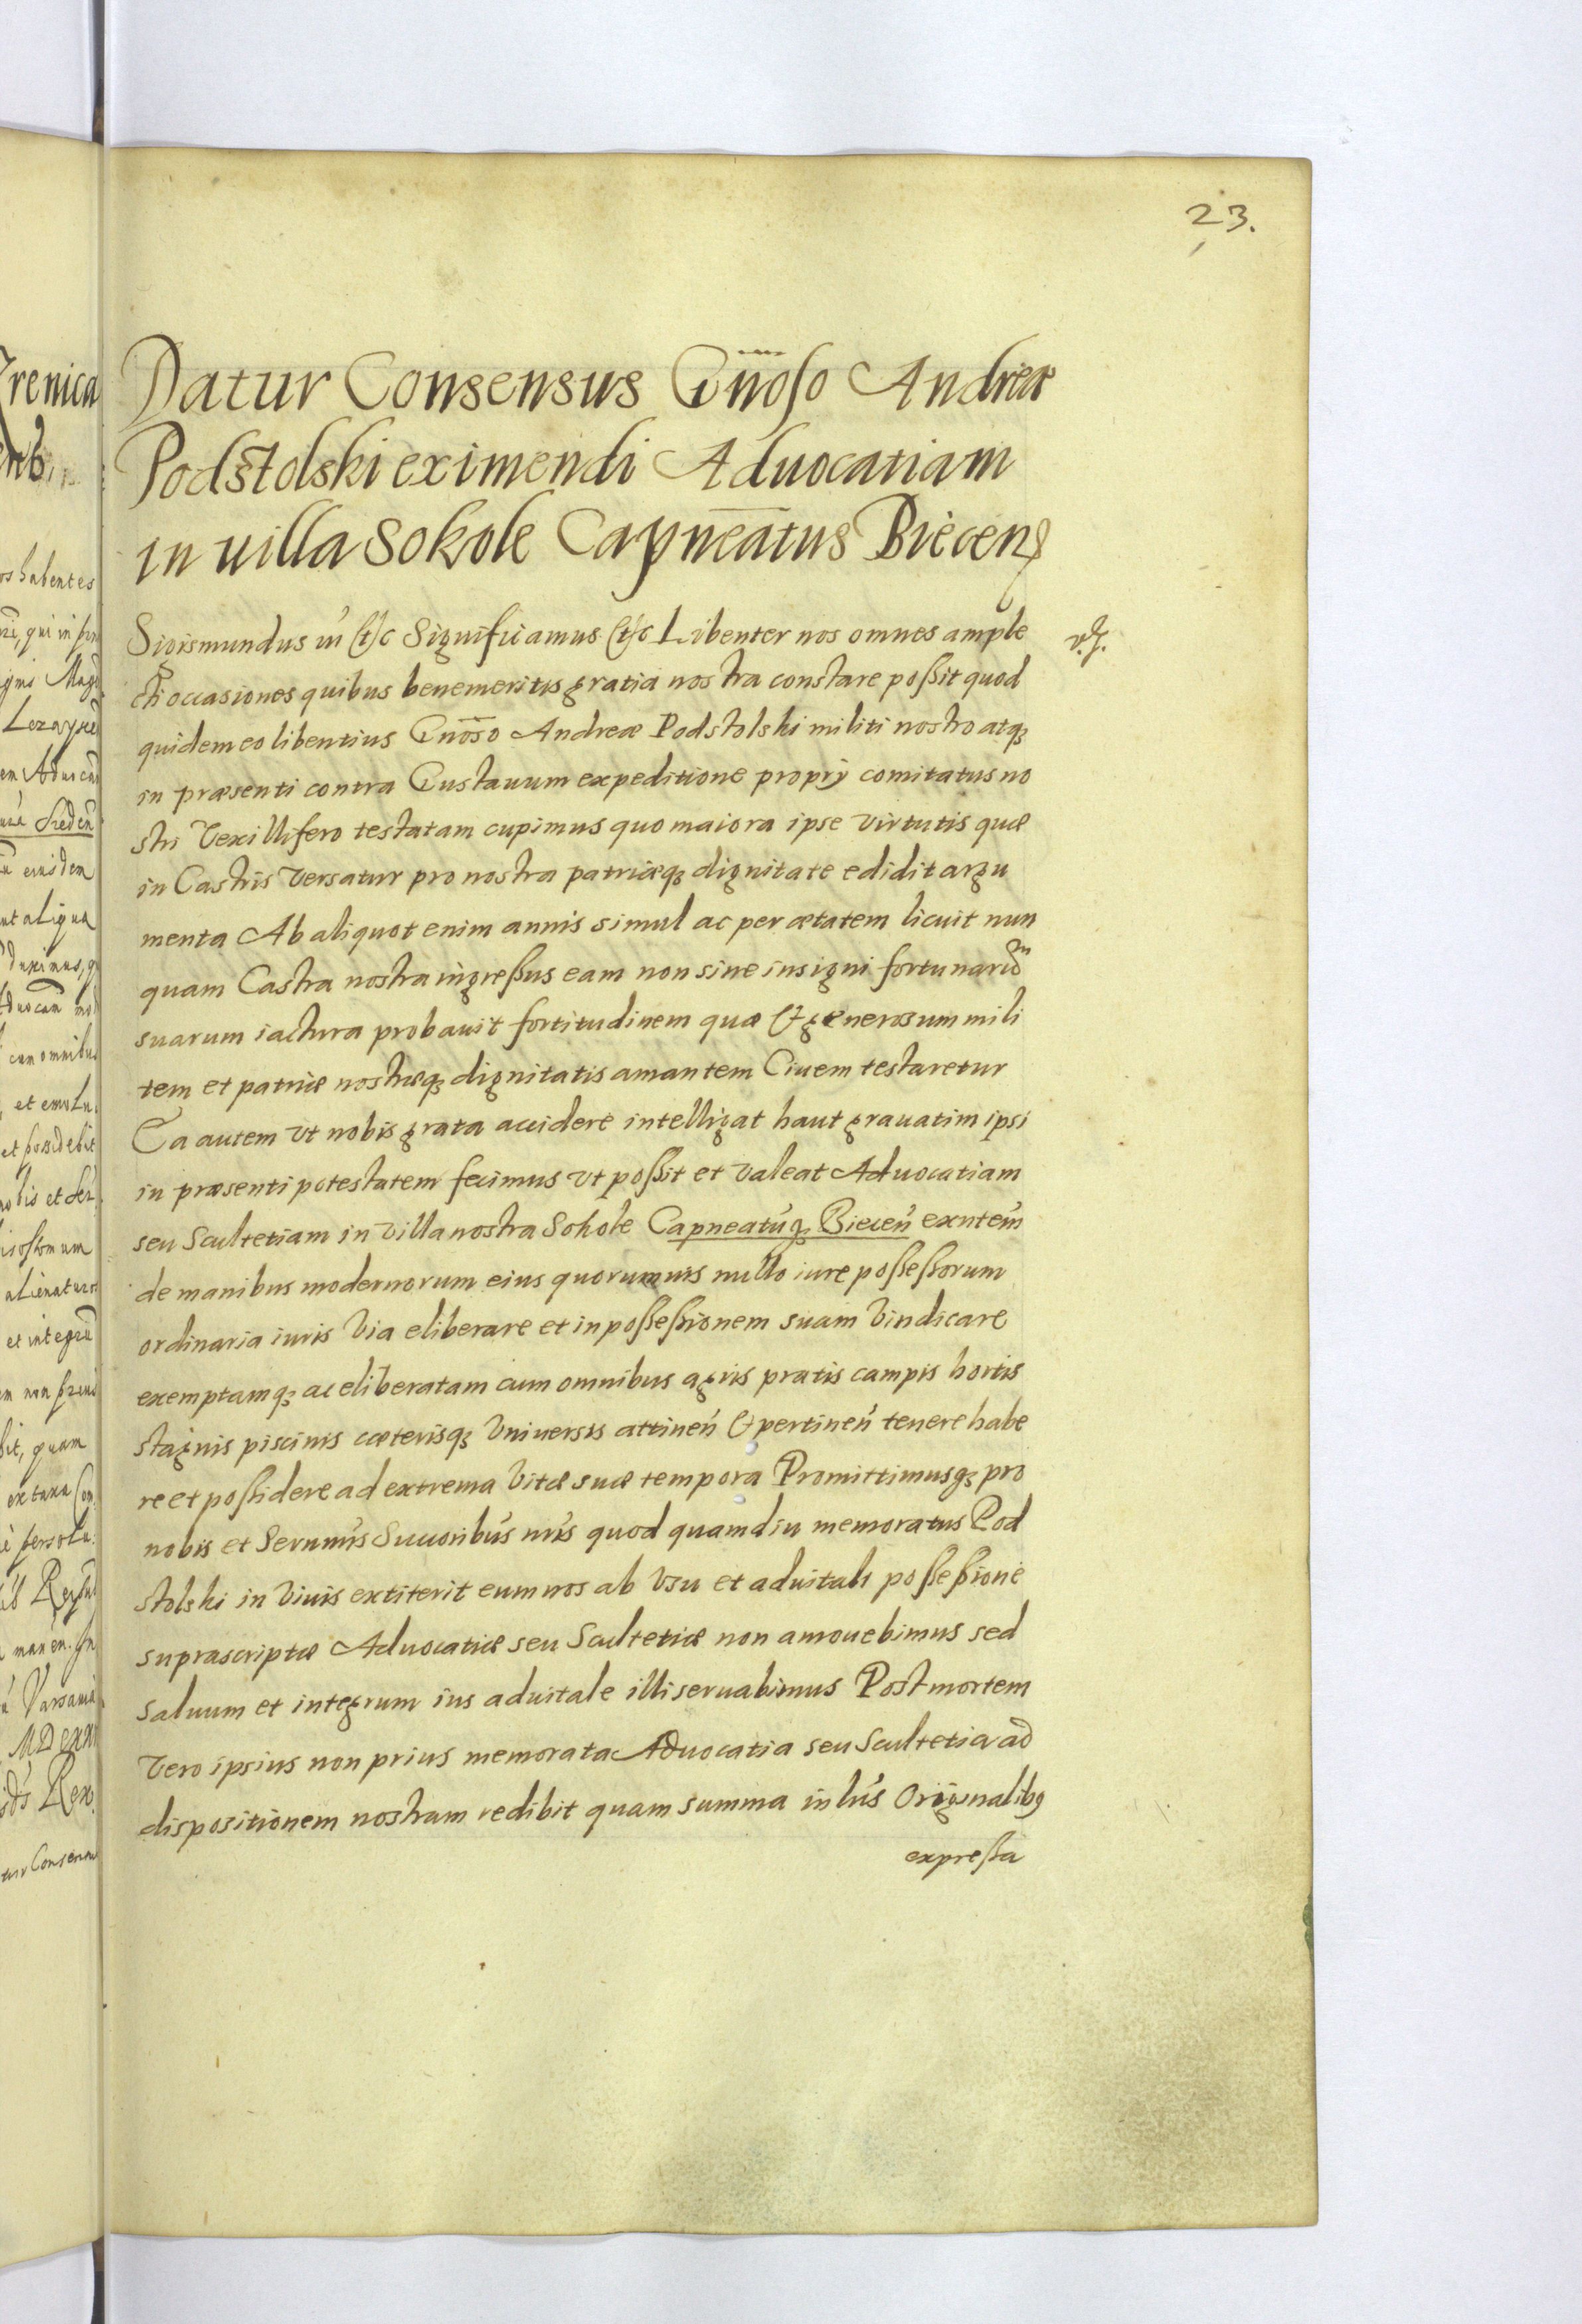 23.
Datur Consensus Gnoso Andreæ
Podstolski eximendi Aduocatiam
in uilla Sokole Capneatus Biecen
Sigismundus III etc Significamus etc Libenter nos omnes ample
cti occasiones quibus benemeritis gratia nostra constare poßit quod
quidem eo libentius Gnoso Andreæ Podstolski militi nostro atq3
in præsenti contra Gustauum expeditione proprij comitatus no
stri Vexillifero testatam cupimus quo maiora ipse virtutis quæ
in Castris versatur pro nostra patriæq3 dignitate edidit argu
menta Ab aliquot enim annis simul ac per ætatem licuit nun
quam Castra nostra ingreßus eam non sine insigni fortunarum
suarum iactura probauit fortitudinem quæ & generosum mili
tem et patriæ nostræq3 dignitatis amantem Ciuem testaretur
Ea autem vt nobis grata accidere intelligat haut grauatim ipsi
in præsenti potestatem fecimus vt poßit et valeat Aduocatiam
seu Scultetiam in villa nostra Sokole Capneatuq3 Biecen exntem
de manibus modernorum eius quorumuis nullo iure poßeßorum
ordinaria iuris via eliberare et in poßeßionem suam vindicare
exemptamq3 ac eliberatam cum omnibus agris pratis campis hortis
stagnis piscinis cæterisq3 vniuersis attinen & pertinen tenere habe
re et poßidere ad extrema vitæ suæ tempora Promittimusq3 pro
nobis et Sernmis Succoribus nris quod quamdiu memoratus Pod
stolski in viuis extiterit eum nos ab vsu et aduitali poßeßione
suprascriptæ Aduocatiæ seu Scultetiæ non amouebimus sed
saluum et integrum ius aduitale illi seruabimus Post mortem
vero ipsius non prius memorata Aduocatia seu Scultetia ad
dispositionem nostram redibit quam summa in lris Originalib9
expreßa